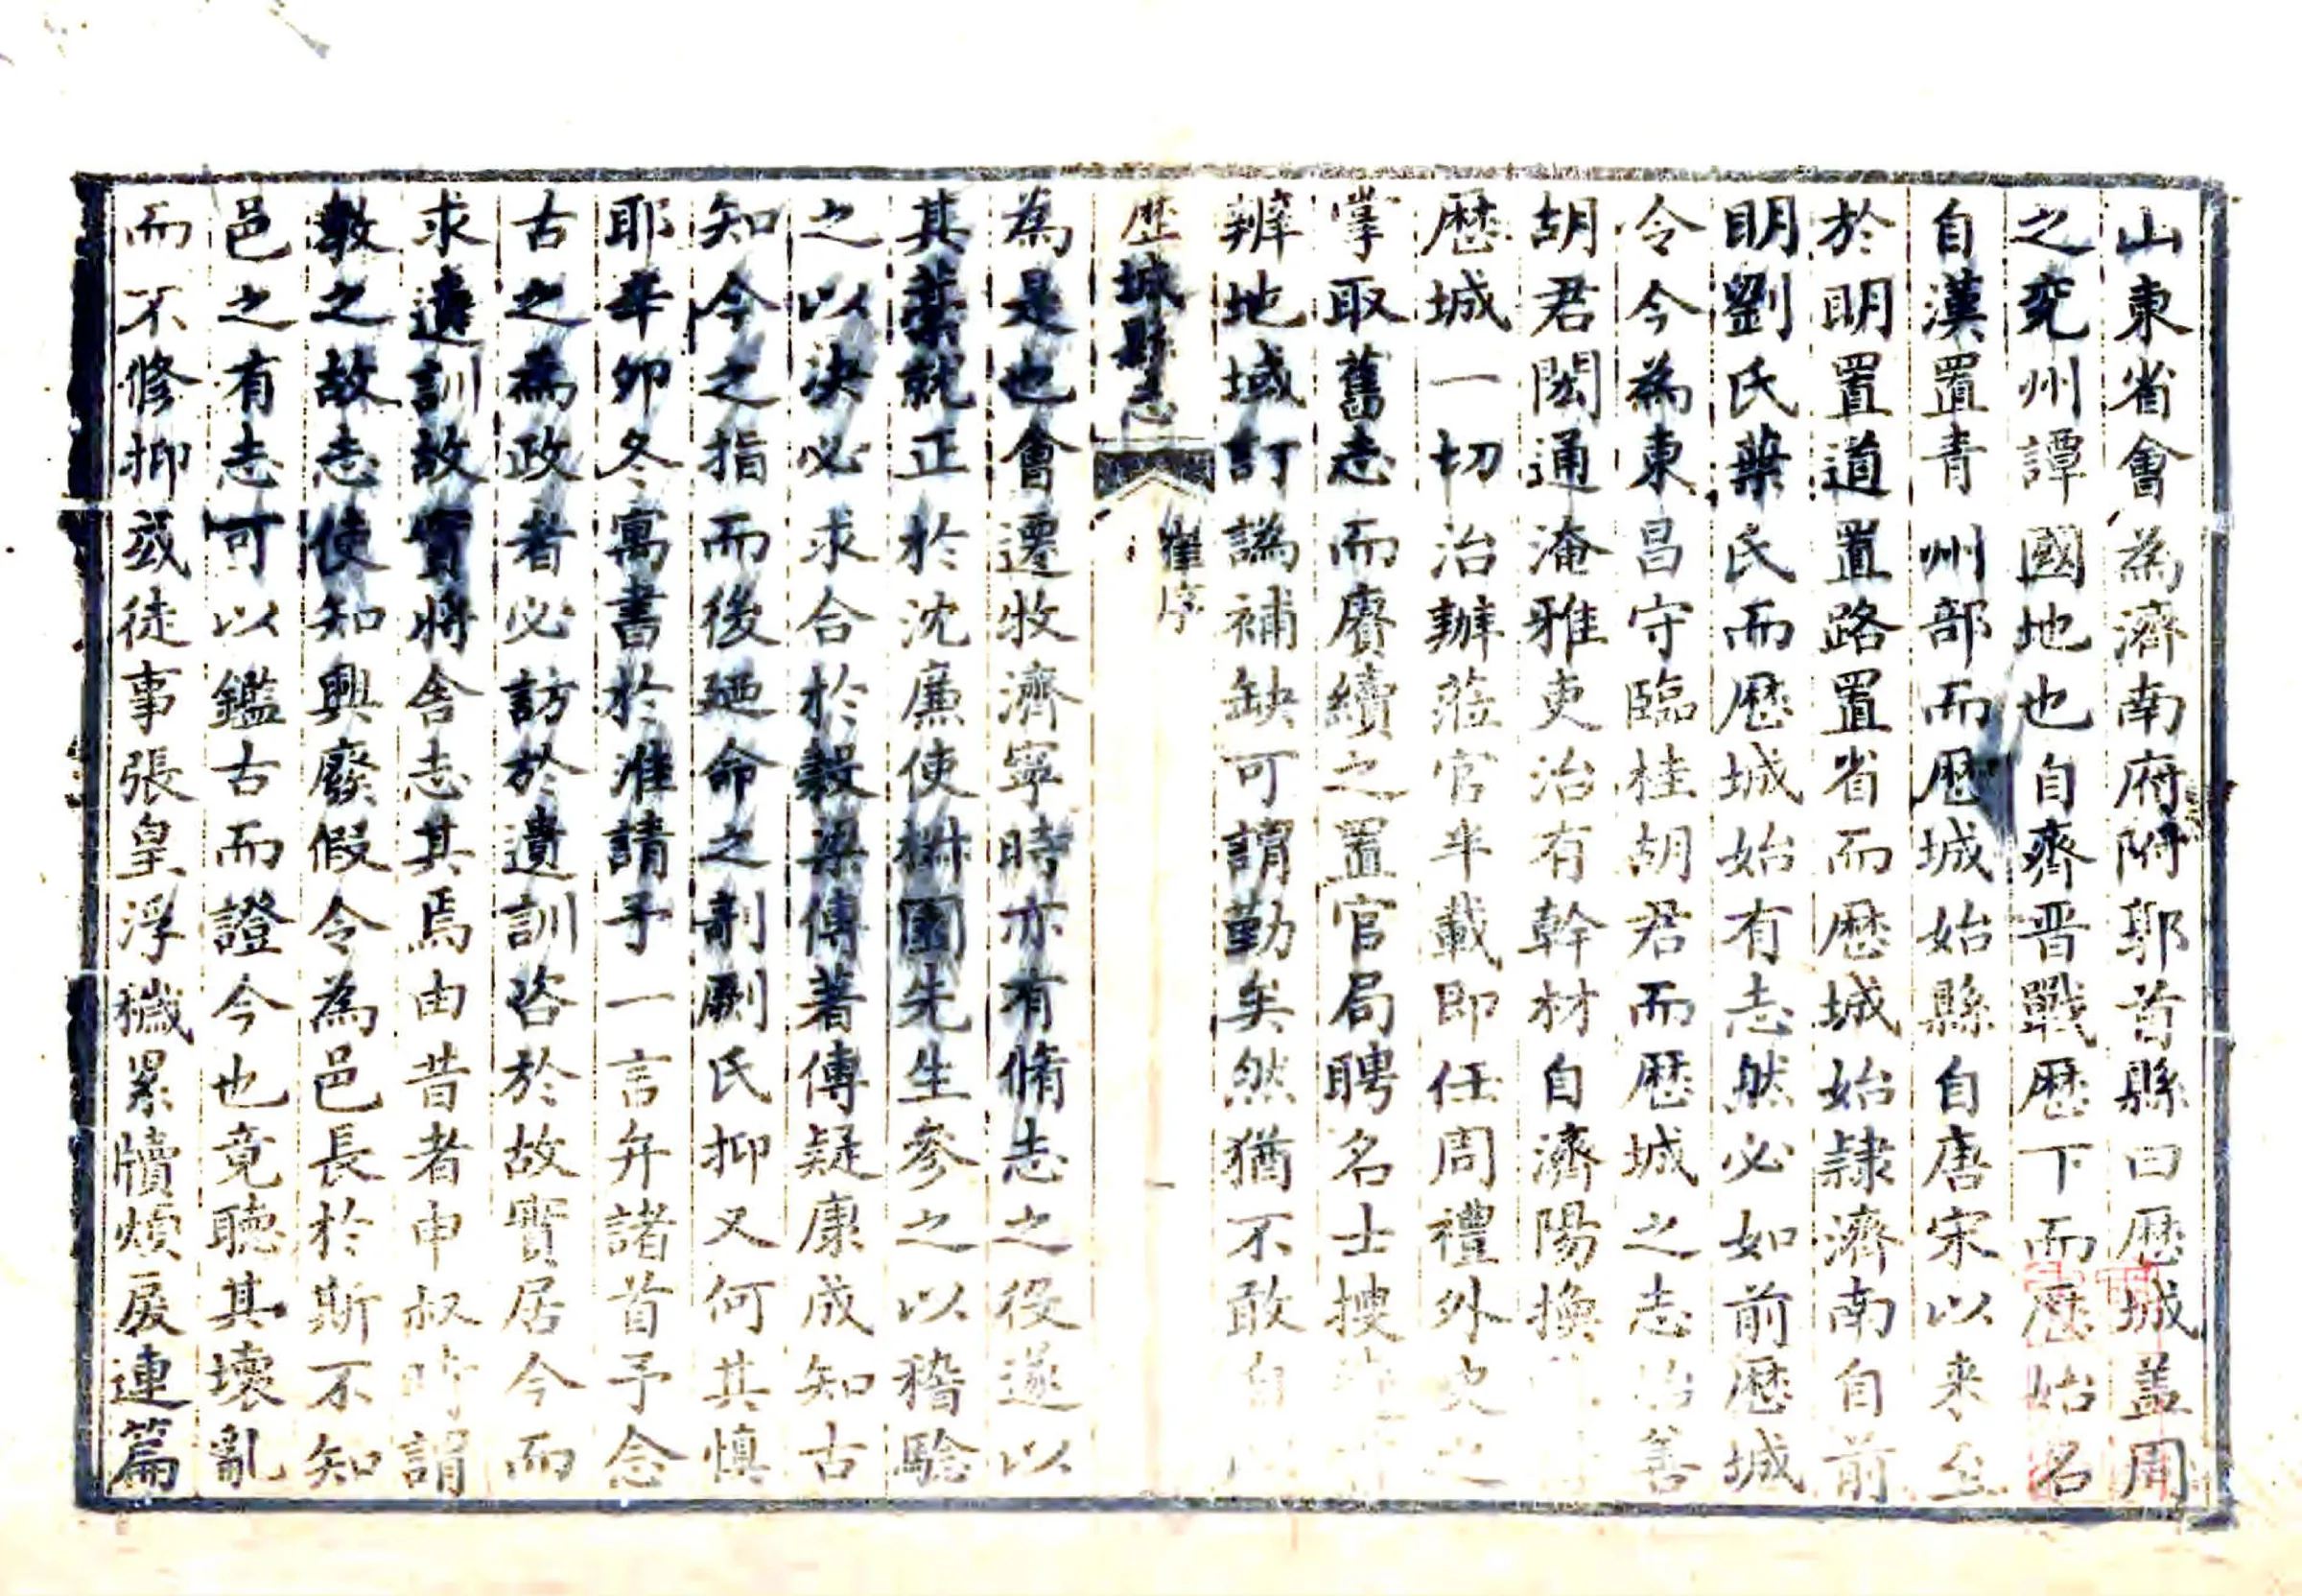 山東省會為濟南府附郭首縣曰歷城蓋周
之兖州譚國地也自齊晋戰歷下而歷始名
自漢置青州部而歷城始縣自唐宋以来至
於明置道置路置省而歷城始隸濟南自前
明劉氏葉氏而歷城始有志然必如前歷城
令今為東昌守臨桂胡君而歷城之志始善
胡君閎通淹雅吏治有幹材自濟陽換
歷城一切治辦蒞官半載即任周禮外史之
掌取舊志而賡續之置官局聘名士搜
辨地域訂譌補缺可謂勤矣然猶不敢自
歷城縣志
崔序
一
為是也會遷牧濟寧時亦有脩志之役遂以
其藁就正於沈廉使椒園先生參之以稽驗
之以決必求合於穀梁傳著傳疑康成知古
知今之指而後廼命之剞劂氏抑又何其慎
耶辛卯冬寓書於淮請予一言弁諸首予念
古之為政者必訪於遺訓咨於故實居今而
求遺訓故實將舍志其焉由昔者申叔時謂
教之故志使知興廢假令為邑長於斯不知
邑之有志可以鑑古而證今也竟聽其壞亂
而不修抑或徒事張皇浮穢累牘煩扆連篇